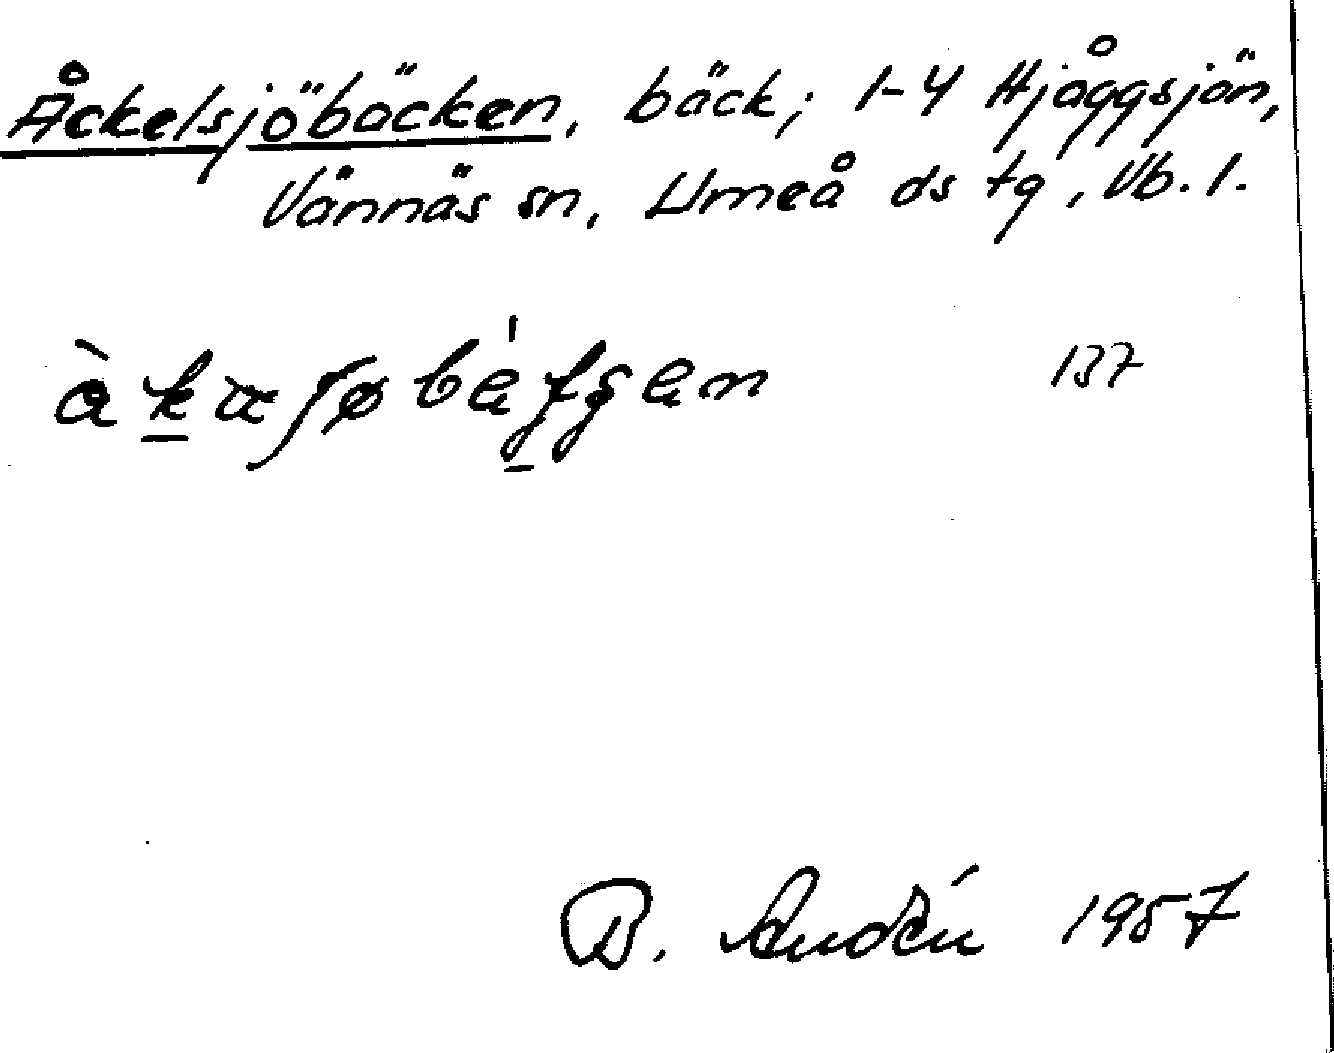 Åckelsjöbäcken, bäck; 1-4 Hjåggsjön,
Vännäs sn, Umeå ds tg, Vb. l.
137
B. Audén 1957